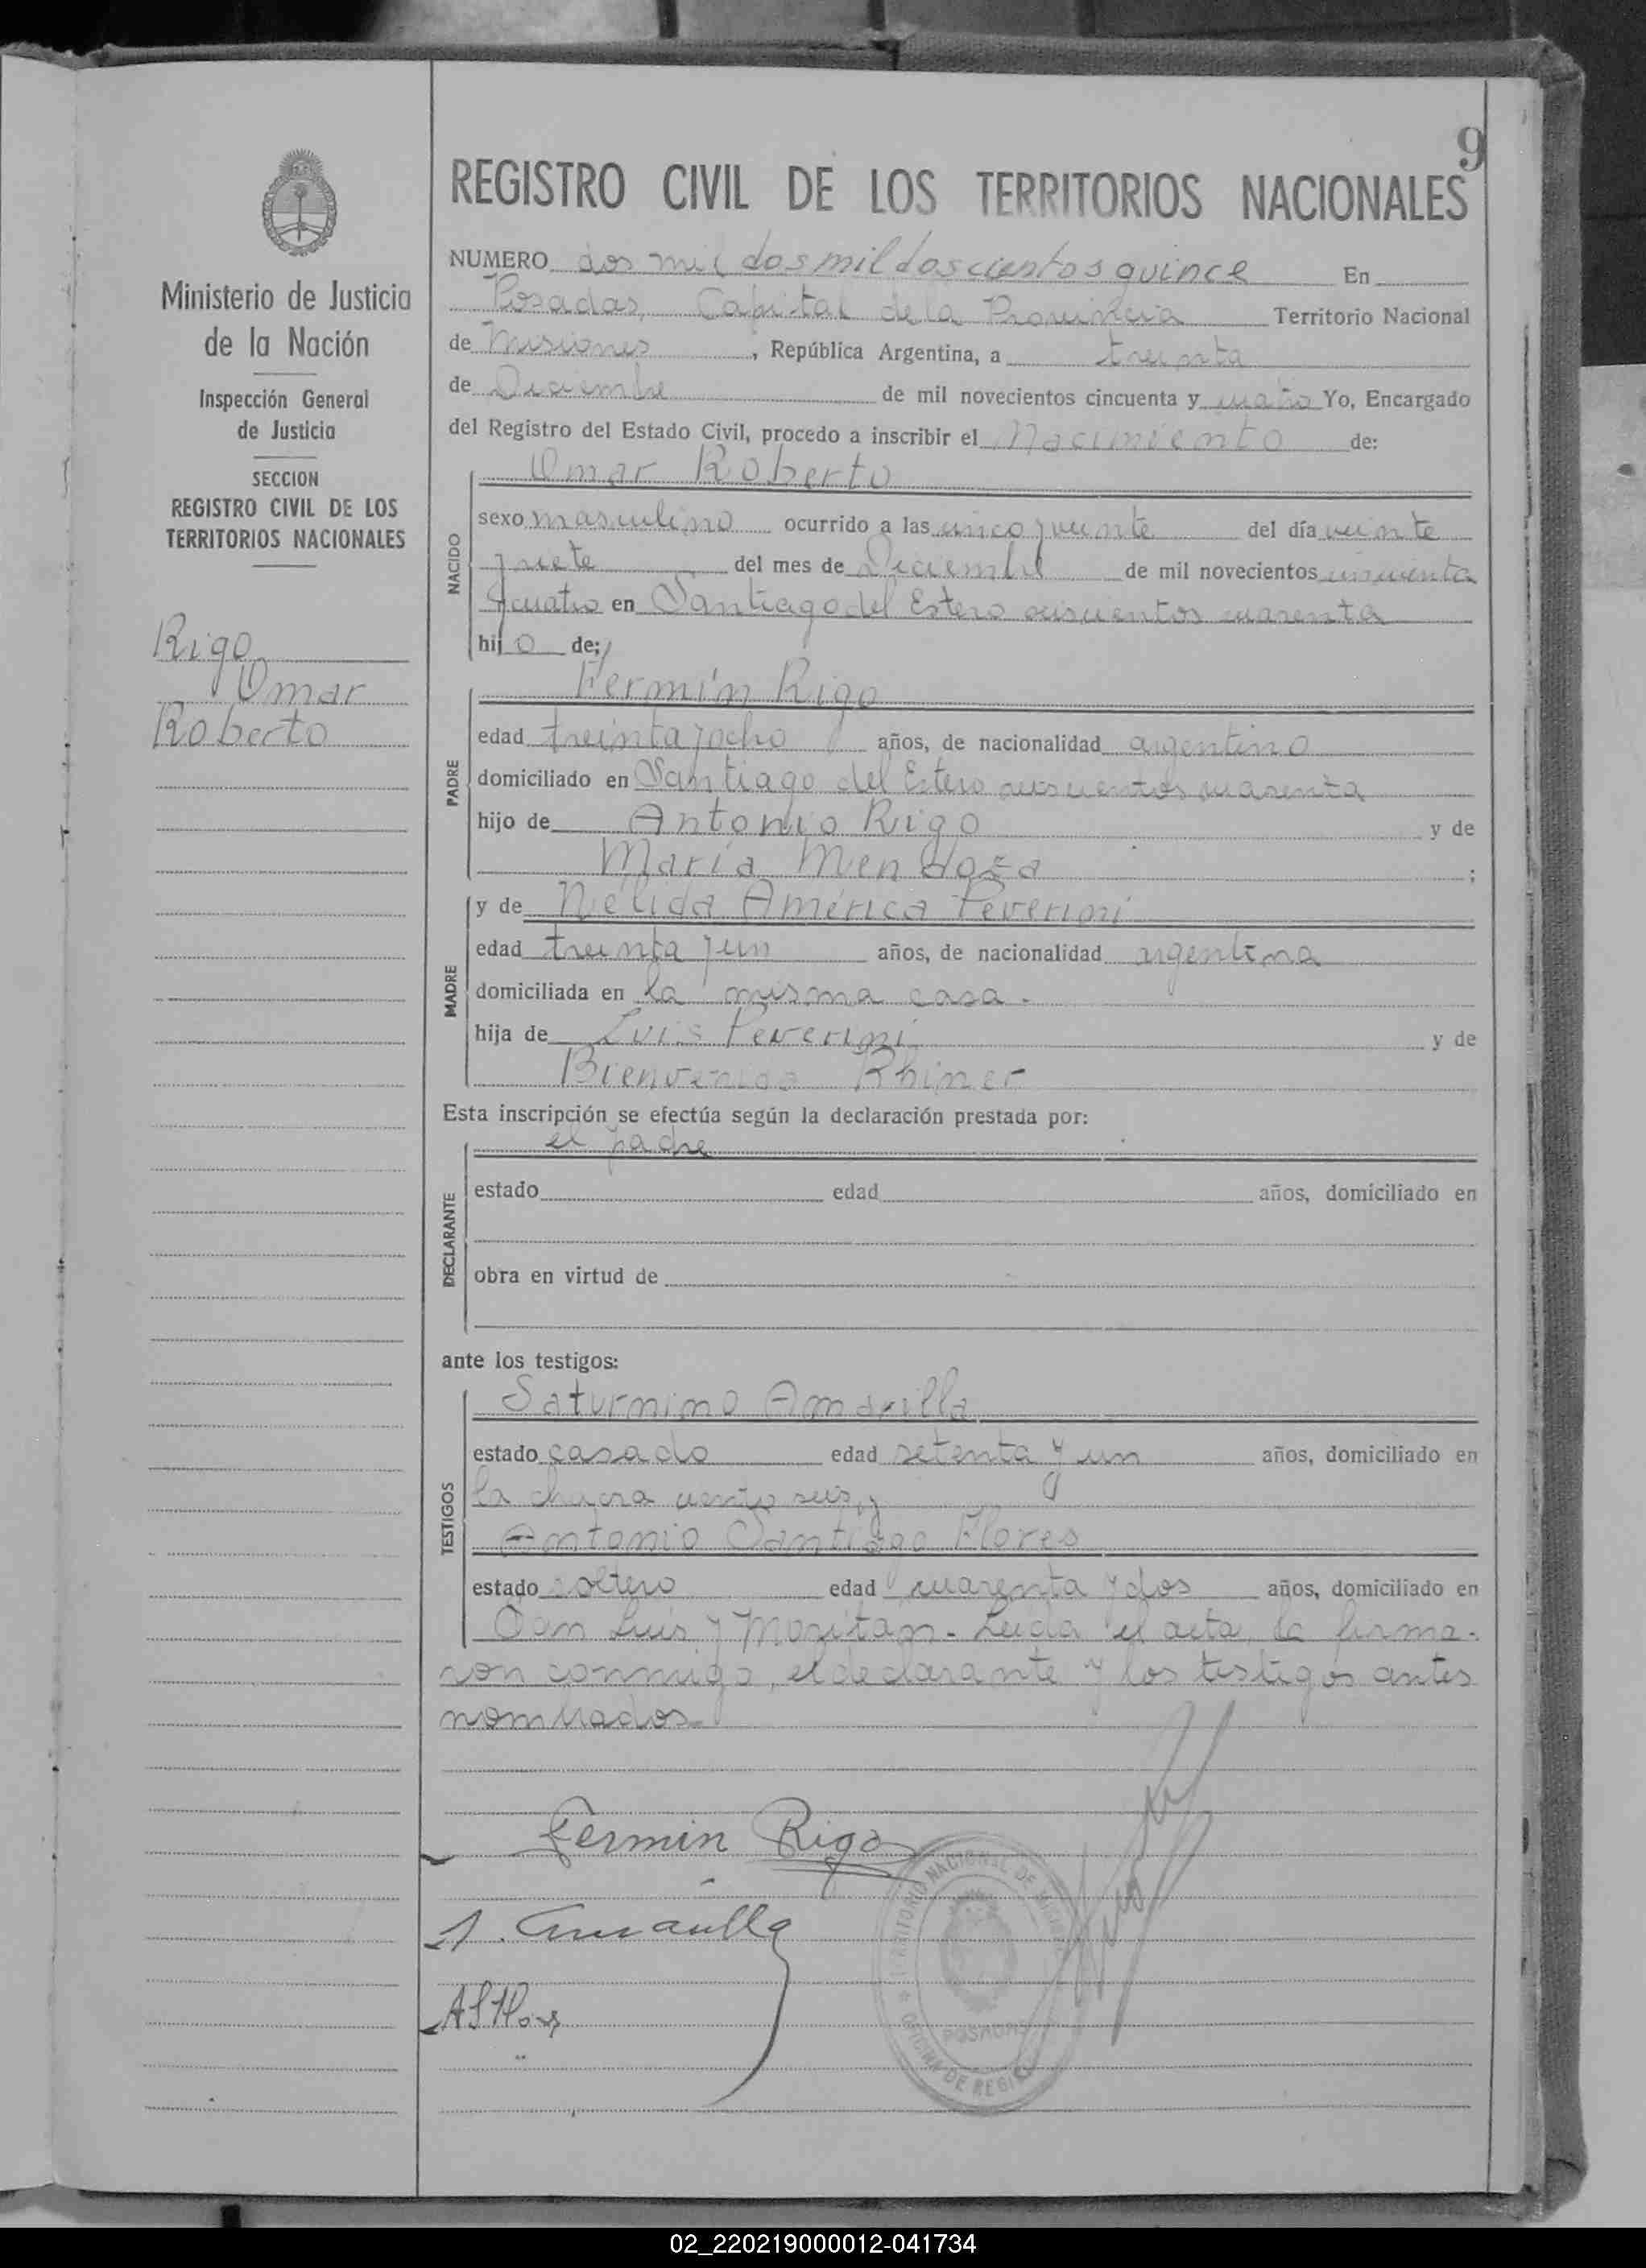 9
REGISTRO CIVIL DE LOS TERRITORIOS NACIONALES
Ministerio de Justicia
de la Nación
Inspección General
de Justicia
SECCION
REGISTRO CIVIL DE LOS
TERRITORIOS NACIONALES
Rigo
Omar
Roberto
NUMERO dos mil dos mil doscientos quince En
Posadas, Capital de la Provincia Territorio Nacional
de Misiones, República Argentina, a treinta
de Diciembre de mil novecientos cincuenta y cuatro Yo, Encargado
del Registro del Estado Civil, procedo a inscribir el Nacimiento de:
NACIDO
Omar Roberto
sexo masculino ocurrido a las cinco y veinte del día veinte
y siete del mes de Diciembre de mil novecientos cincuenta
y cuatro en Santiago del Estero seiscientos cuarenta
hijo de;
PADRE
Fermín Rigo
edad treinta y ocho años, de nacionalidad argentino
domiciliado en Santiago del Estero seiscientos cuarenta
hijo de Antonio Rigo y de
María Mendoza ;
MADRE
y de Nélida América Peverini
edad treinta y un años, de nacionalidad argentina
domiciliada en la misma casa.
hija de Luis Peverini y de
Bienvenida Rhiner
Esta inscripción se efectúa según la declaración prestada por:
DECLARANTE
el padre
estado edad años, domiciliado en
obra en virtud de
ante los testigos:
TESTIGOS
Saturnino Amarilla
estado casado edad setenta y un años, domiciliado en
la chacra ciento seis, y
Antonio Santiago Flores
estado soltero edad cuarenta y dos años, domiciliado en
San Luis y Moritán - Leída el acta, la firma-
ron conmigo, el declarante y los testigos antes
nombrados.-
Fermin Rigo
S. Amarilla
A S Flores
TERRITORIO NACIONAL DE MISIONES
POSADAS
OFICINA DE REGISTRO
02_220219000012-041734